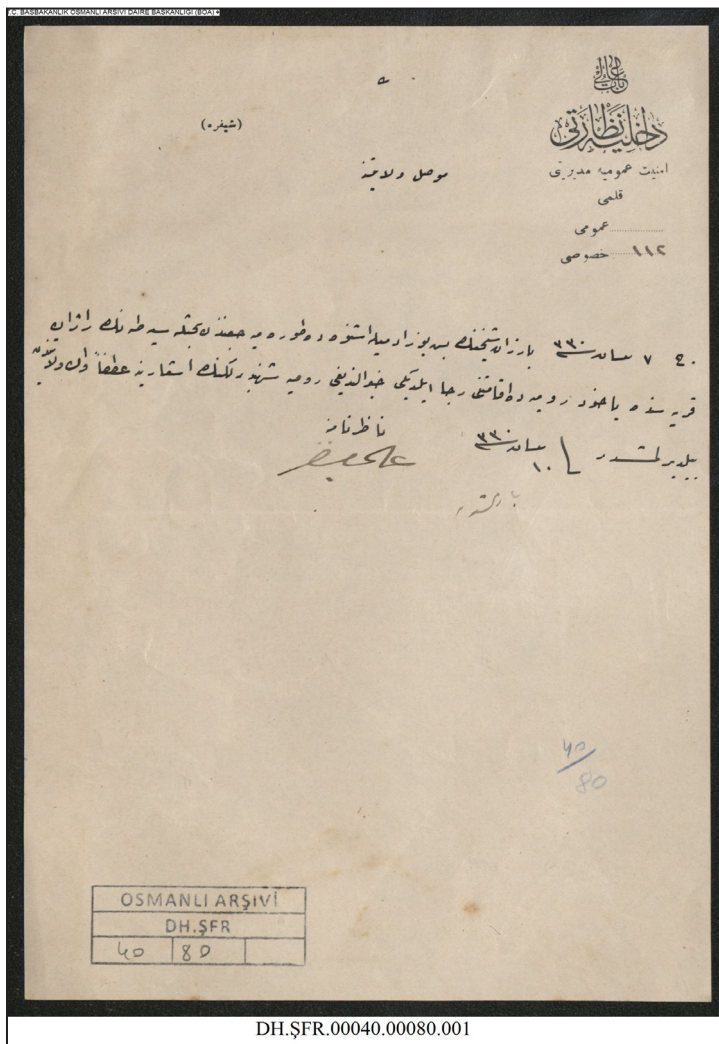 T.C. BAŞBAKANLIK OSMANLI ARŞİVİ DAİRE BAŞKANLIĞI (BOA)
باب عالی
داخلیه نظارتی
امنیت عمومیه مدیریتی
قلمی
عمومی
خصوصی ١١٢
(شیفره)
موصل ولایتنه
ج ٧ نیسان ٣٣٠ بارزان شیخنك بش یوز آدمیله اشنوه ده سید طه نك راژان
قریه سنده یاخود رومیه ده اقامتنی رجا ایلدیكی رومیه شهبندرلكنك اشعارینه عطفاً وان ولایتندن
بیلدیرلمشدر ١٠ نیسان ٣٣٠
ناظر نامنه
40/80
OSMANLI ARŞİVİ
DH.ŞFR
40 80
DH.ŞFR.00040.00080.001